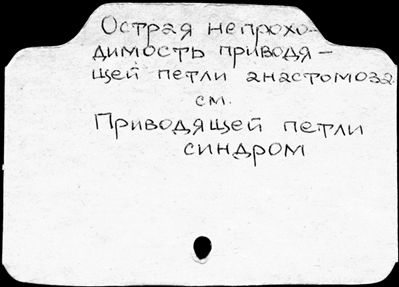 Острая непрохо-
димость приводя-
щей петли анастомоза
см.
Приводящей петли
синдром